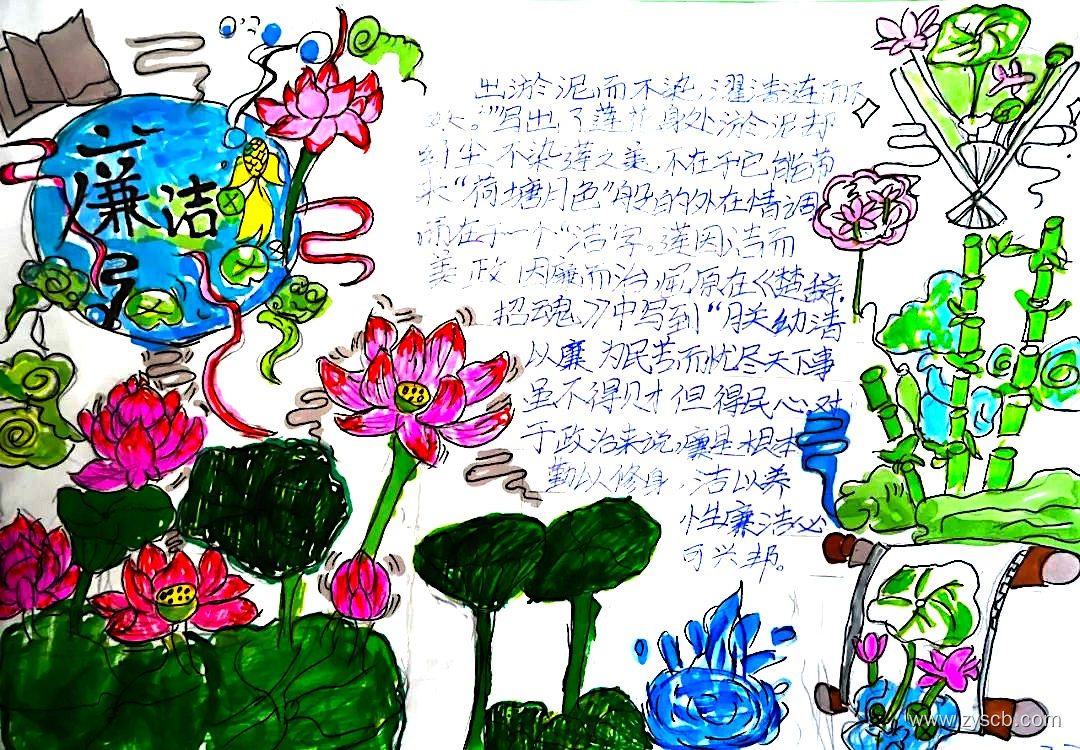 廉洁
出淤泥而不染,濯清涟而不
妖。"写出了莲花身处淤泥却
纤尘不染莲之美,不在于它能带
来"荷塘月色"般的外在情调
而在于一个"洁"字。莲因洁而
美,政因廉而治,屈原在《楚辞.
招魂》中写到"朕幼清
以廉 为民苦而忧尽天下事
虽不得财 但得民心,对
于政治来说,廉是根本
勤以修身,洁以养
性廉洁必
可兴邦。
www.zyscb.com